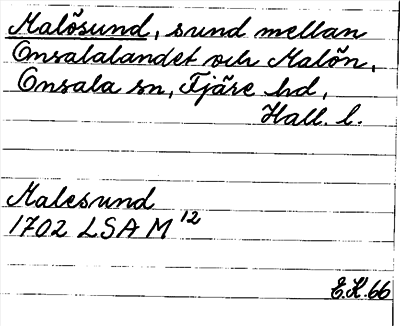 Malösund, sund mellan
Onsalalandet och Malön,
Onsala sn, Fjäre hd,
Hall. l.
Malesund
1702 LSA M 12
E.K. 66